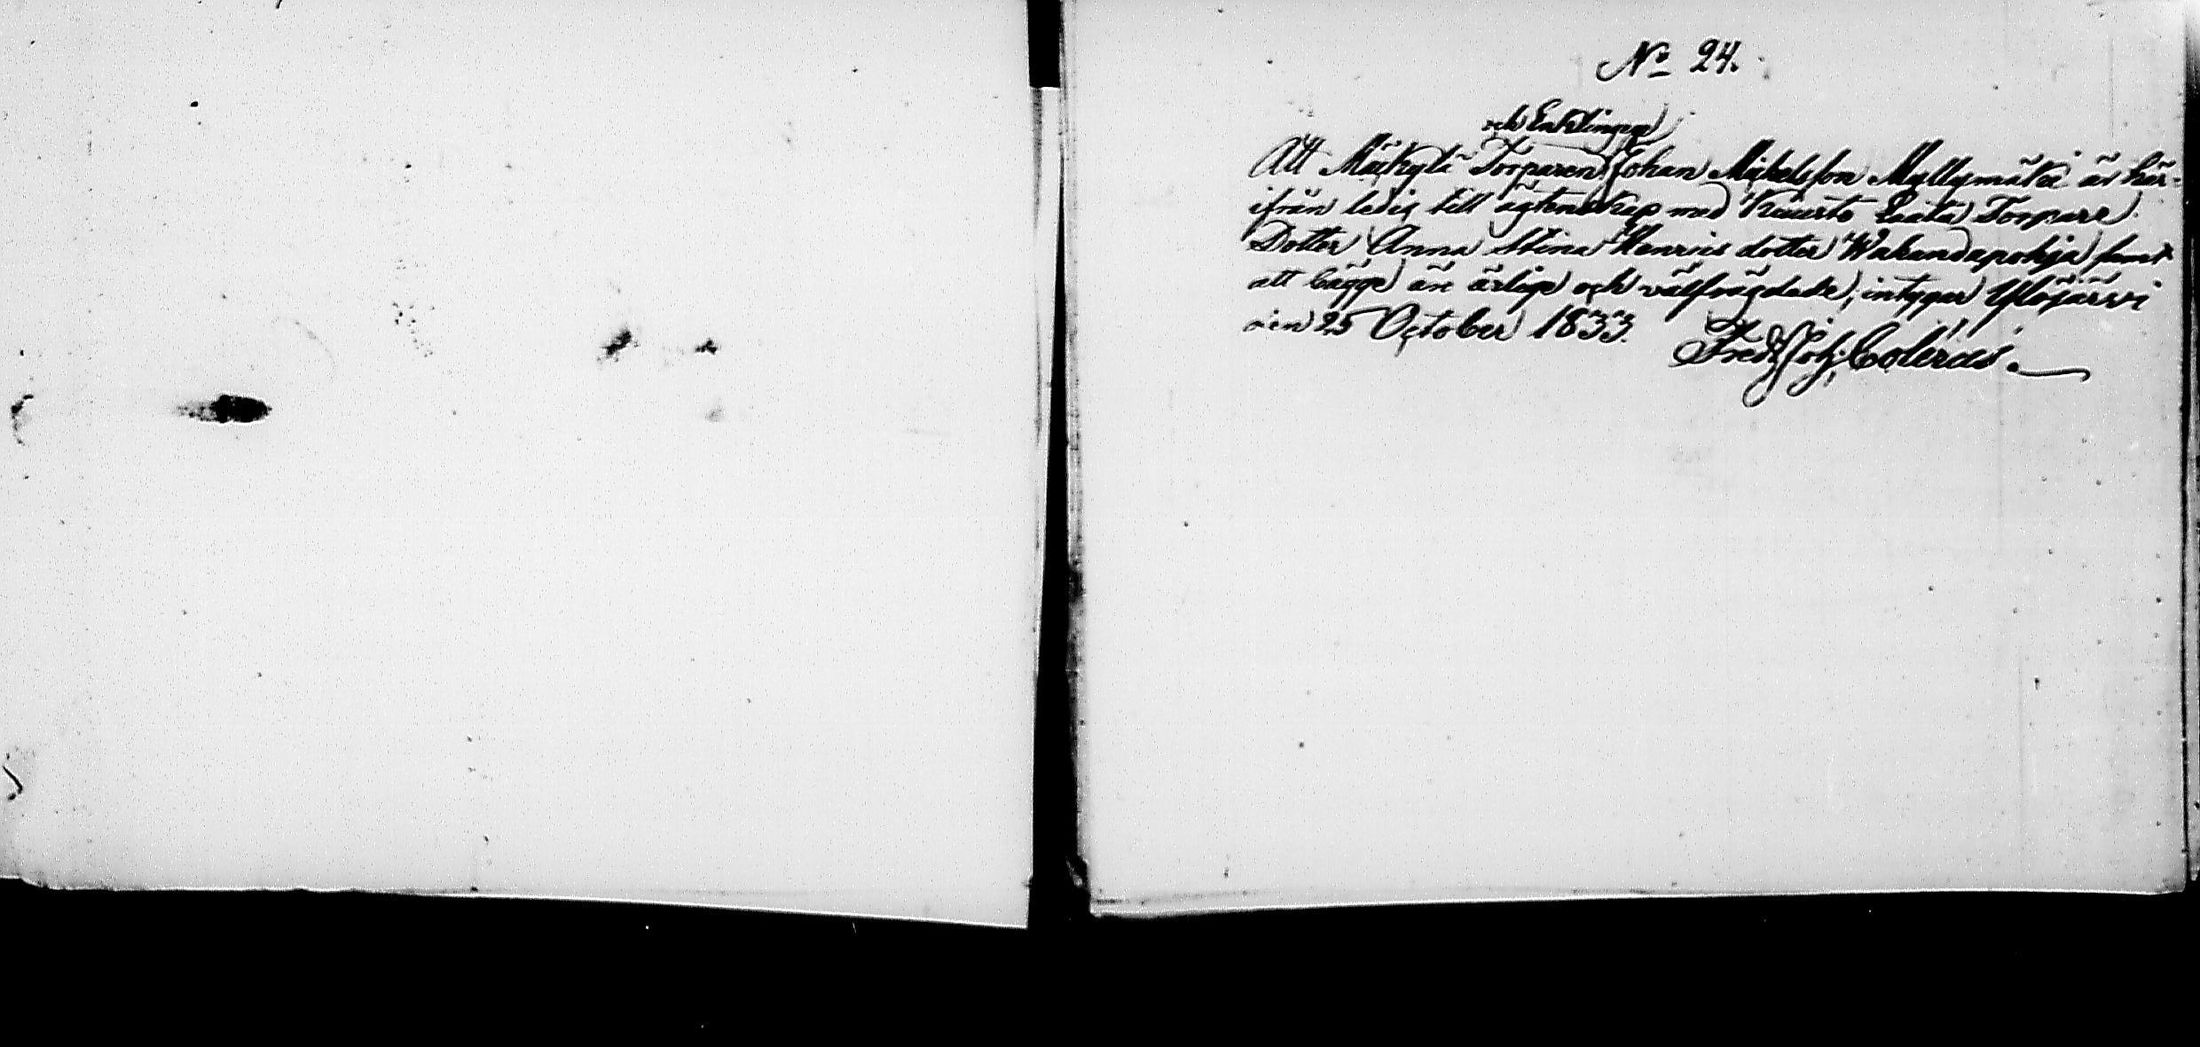 No 24.
och Enklingen
Att Mäkylä Torparen Johan Mickelsson Myllymäki är här-
ifrån ledig till ägtenskap med Kauerto Laata Torpare
Dotter Anna Stina Henrics dotter Wahandapohja samt
att bägge äro ärlige och välfrägdade, intygar Ylöjärvi
den 25 October 1833.
Fredr Joh: Colerus.